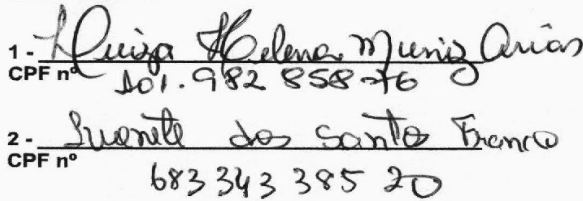 1 - Luiza Helena Muniz Arias
CPF nº 101.982 858-76
2 - Luanete dos Santos Franco
CPF nº 683 343 385 20